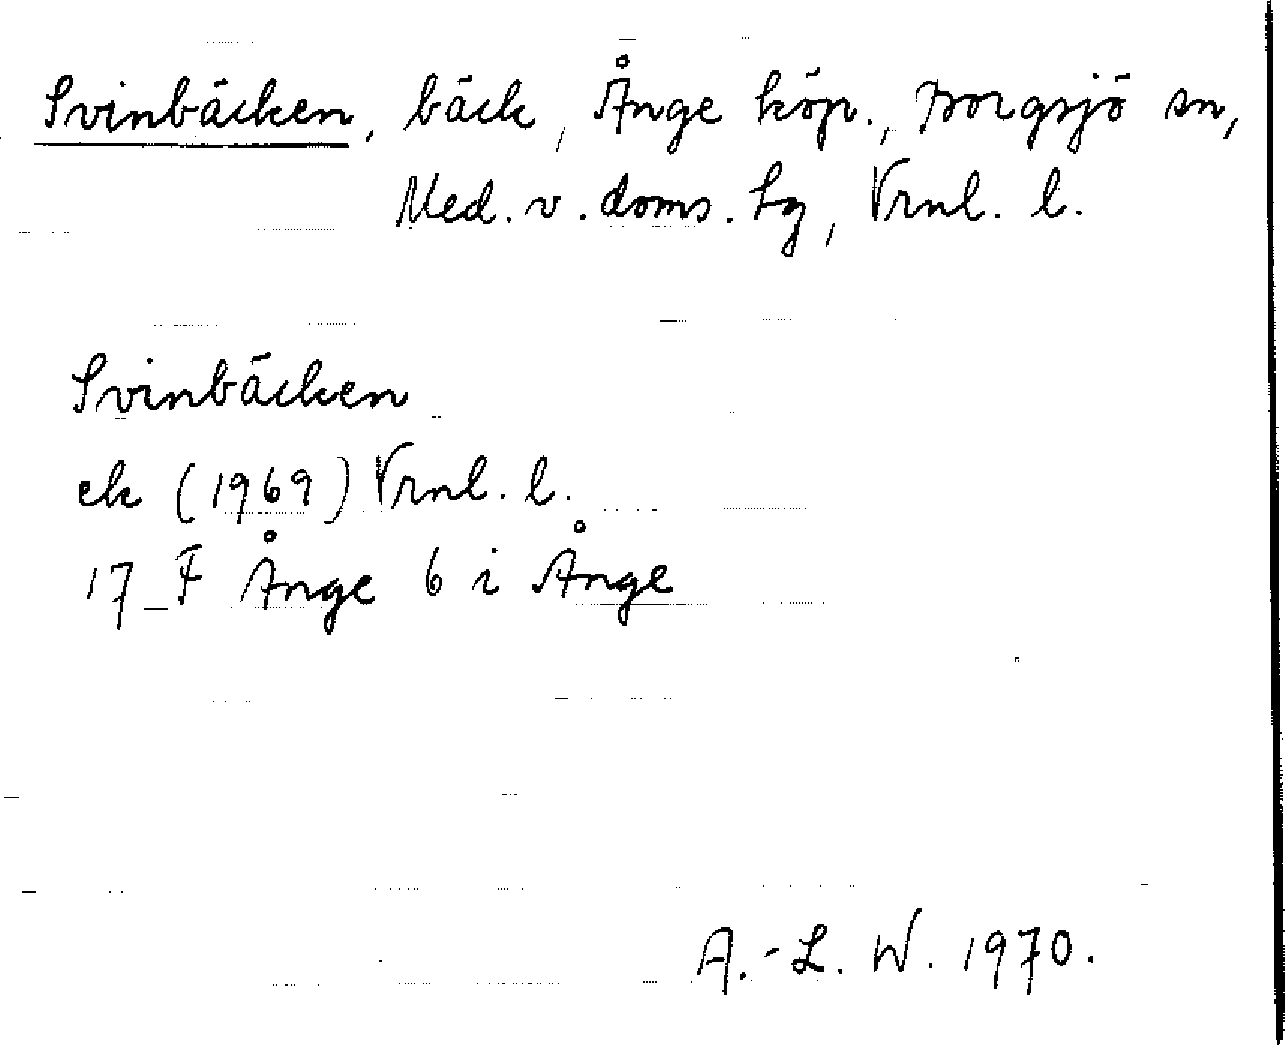 Svinbäcken, bäck, Ånge köp., Borgsjö sn,
Med. v. doms. hg, Vrnl. l.
Svinbäcken
ek (1969) Vrnl. l.
17 F Ånge 6 i Ånge
A.-L. W. 1970.